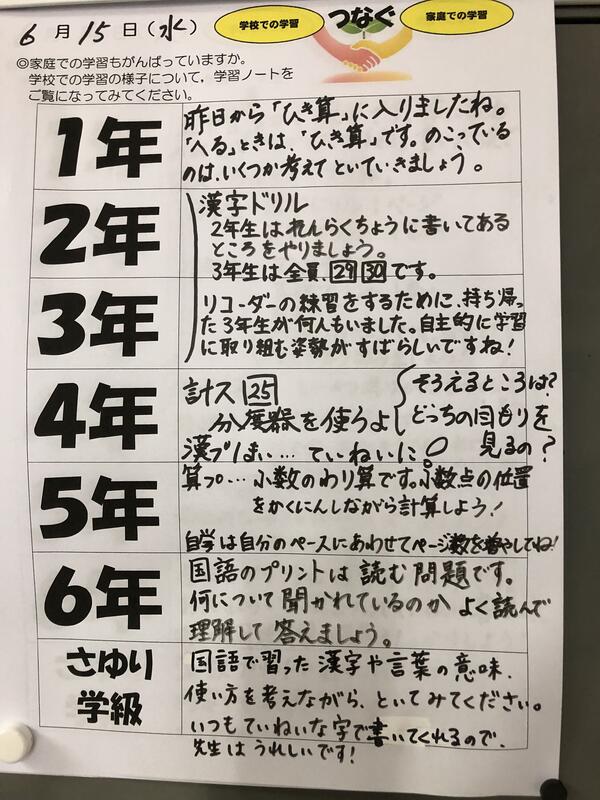 6月15日(水)
学校での学習 つなぐ 家庭での学習
◎家庭での学習もがんばっていますか。
学校での学習の様子について,学習ノートを
ご覧になってみてください。
1年
昨日から「ひき算」に入りましたね。
「へる」ときは、「ひき算」です。のこっている
のは、いくつか考えてといていきましょう。
2年
漢字ドリル
2年生はれんらくちょうに書いてある
ところをやりましょう。
3年生は全員、29 30です。
3年
リコーダーの練習をするために、持ち帰っ
た3年生が何人もいました。自主的に学習
に取り組む姿勢がすばらしいですね!
4年
計ス 25
分度器を使うよ
そろえるところは?
どっちの目もりを
見るの?
漢プはい…ていねいに。
5年
算プ…小数のわり算です。小数点の位置
をかくにんしながら計算しよう!
自学は自分のペースにあわせてページ数を増やしてね!
6年
国語のプリントは読む問題です。
何について聞かれているのかよく読んで
理解して答えましょう。
さゆり
学級
国語で習った漢字や言葉の意味、
使い方を考えながら、といてみてください。
いつもていねいな字で書いてくれるので、
先生はうれしいです!